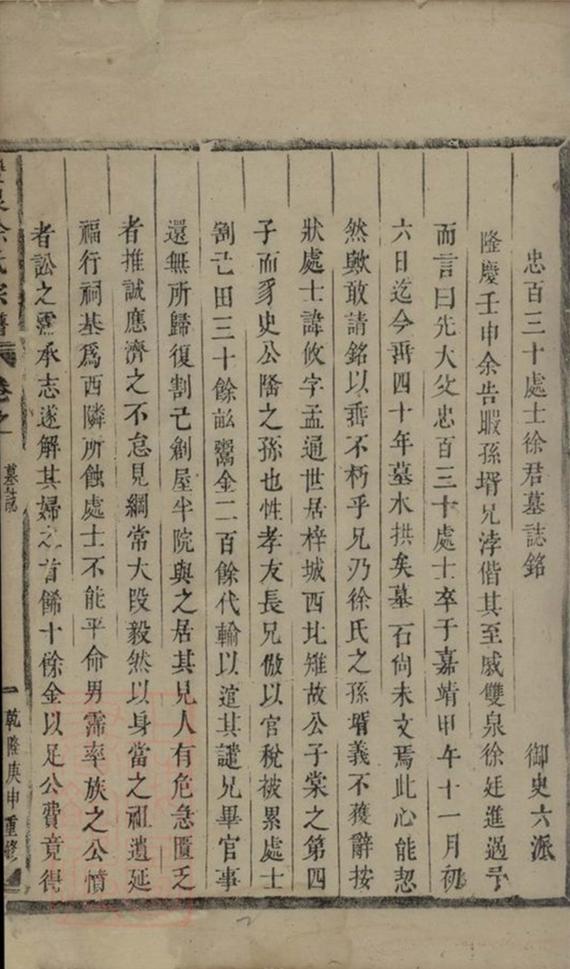 忠百三十處士徐君墓誌銘
御史六派
隆慶壬申余告暇孫壻兄浡偕其至戚雙泉徐廷進過予
而言曰先大父忠百三十處士卒于嘉靖甲午十一月初
六日迄今再四十年墓木拱矣墓石尚未文焉此心能恝
然歟敢請銘以垂不朽乎兄乃徐氏之孫壻義不獲辭按
狀處士諱攸字孟通世居梓城西北雉故公子棠之第四
子而豸史公階之孫也性孝友長兄倣以官稅被累處士
割己田三十餘畝鬻金二百餘代輸以逭其譴兄畢官事
還無所歸復割己創屋半院與之居其見人有危急匱乏
者推誠應濟之不怠見綱常大叚毅然以身當之祖遺延
福行祠基爲西隣所蝕處士不能平命男霈率族之公憤
者訟之霈承志遂解其婦之首餙十餘金以足公費竟得
徐氏宗譜
墓誌
一
乾隆庚申重修